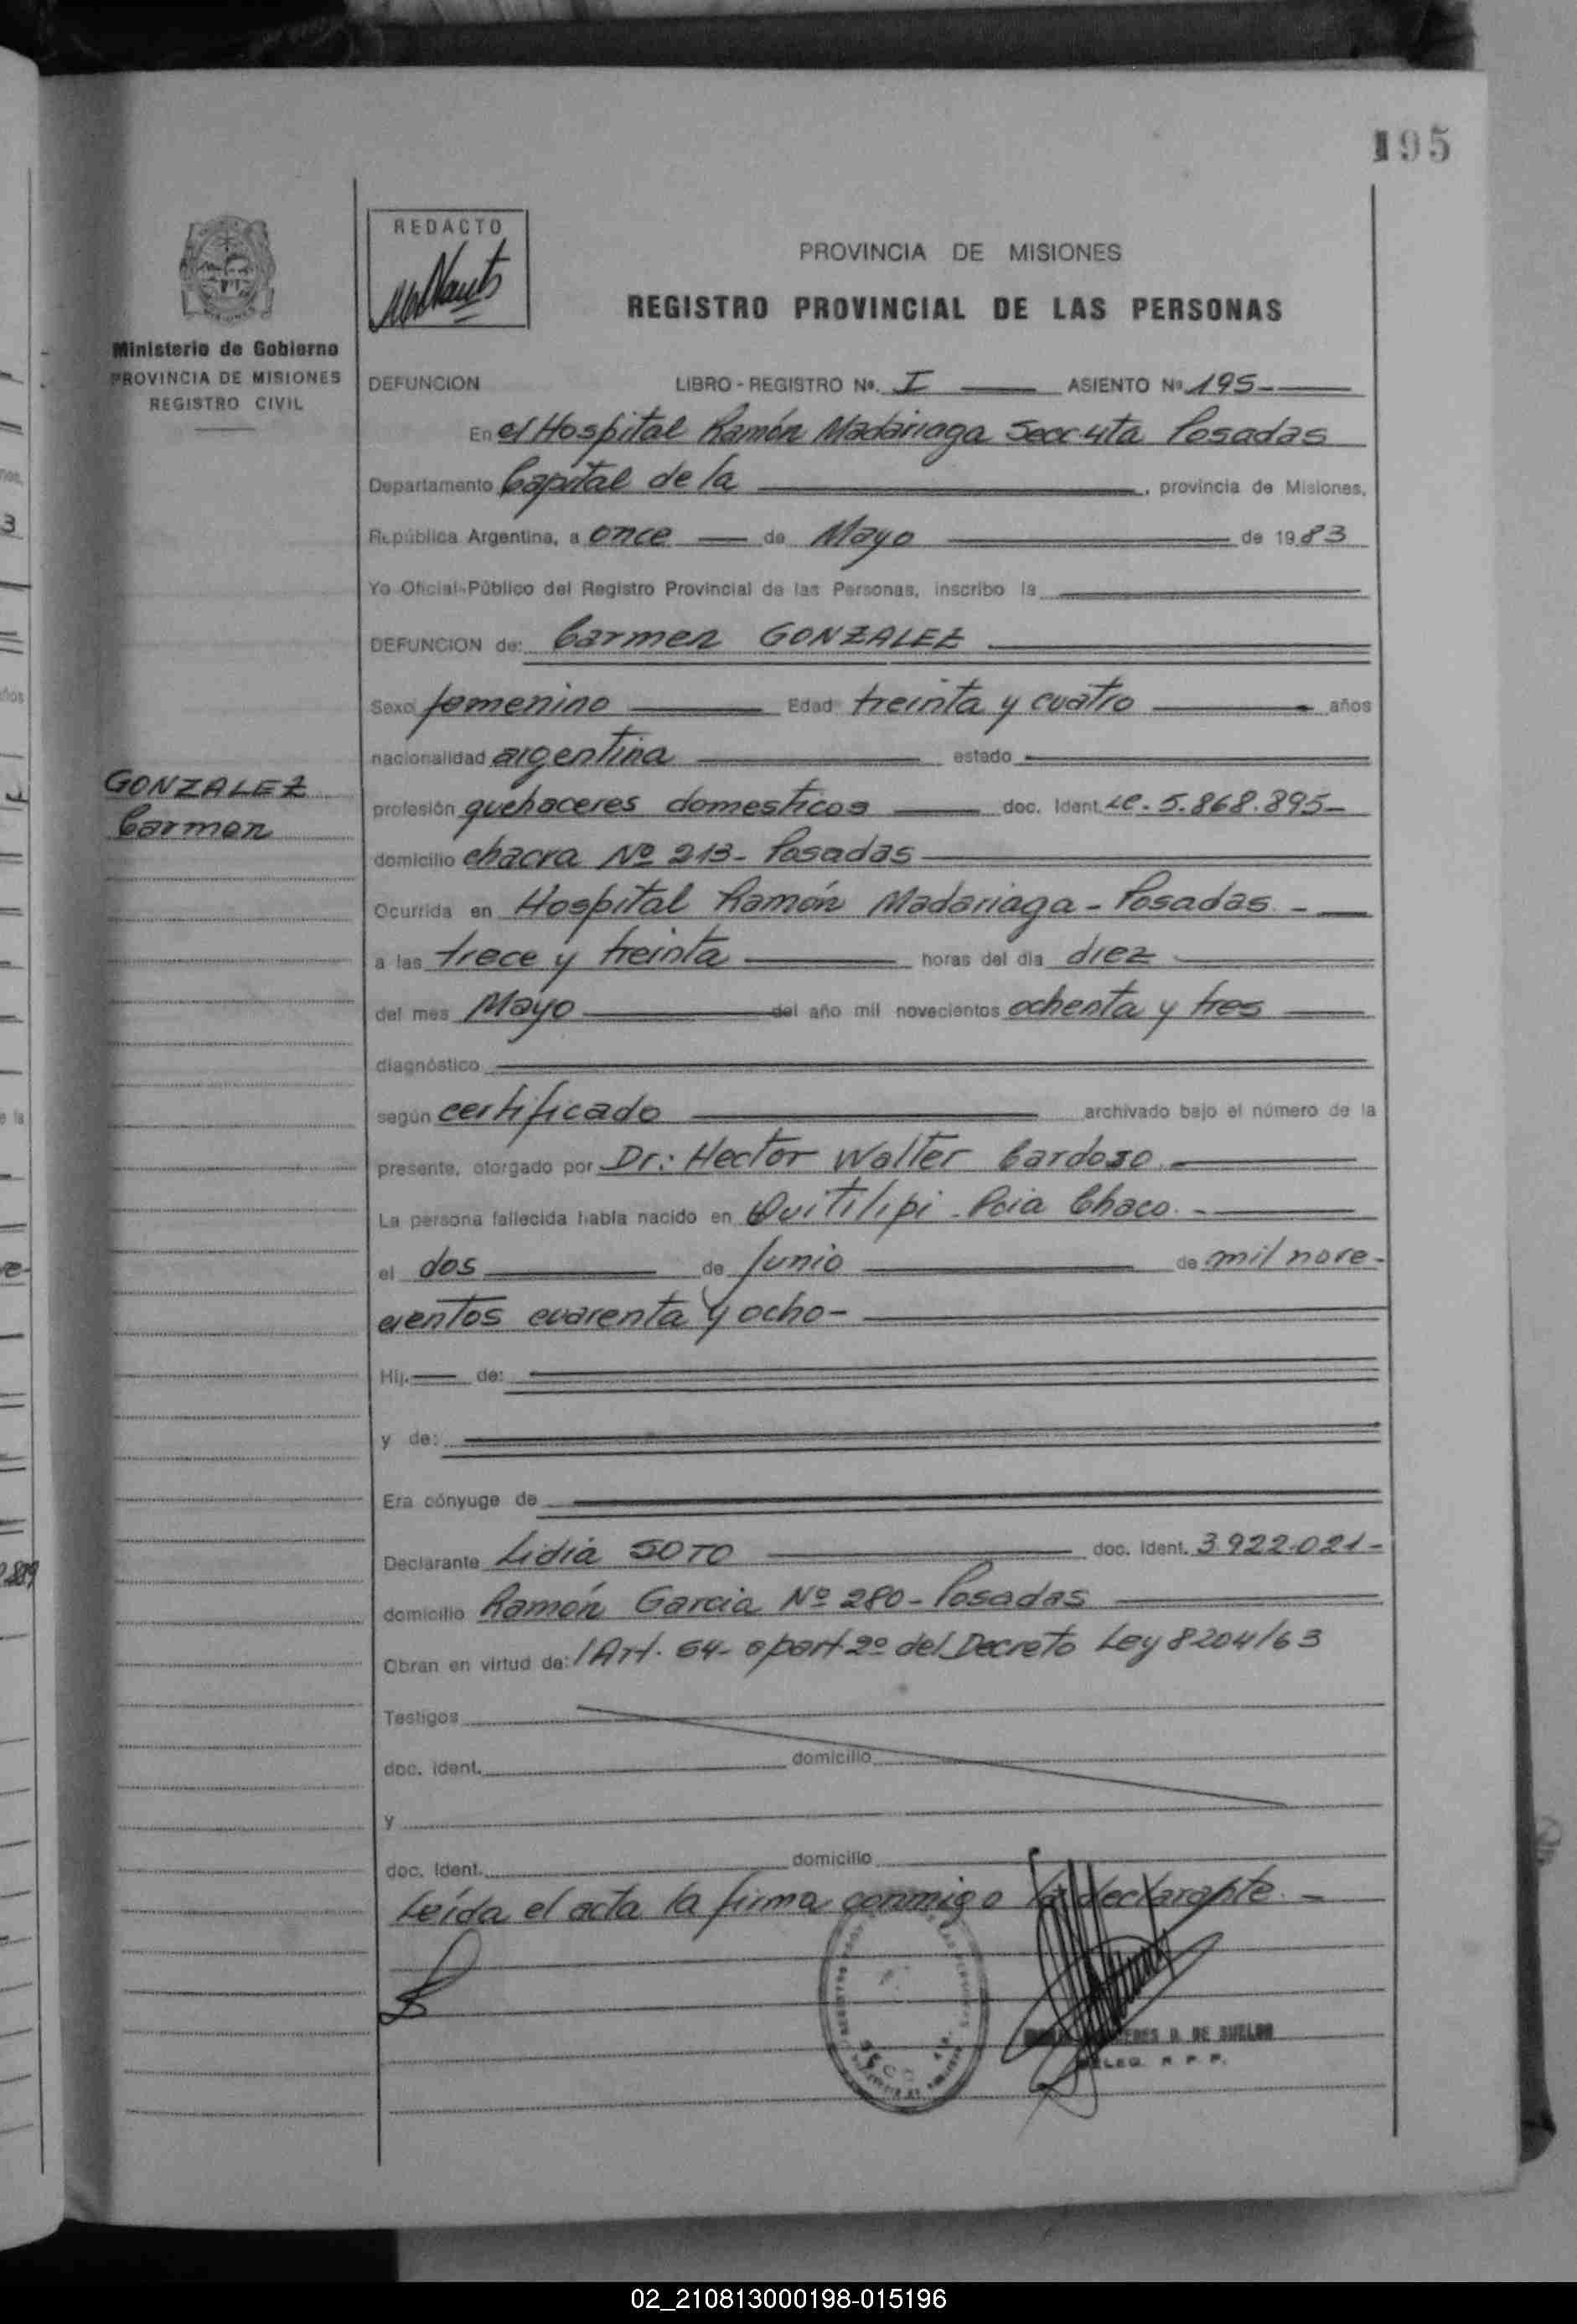 195
REDACTO
PROVINCIA DE MISIONES
REGISTRO PROVINCIAL DE LAS PERSONAS
Ministerio de Gobierno
PROVINCIA DE MISIONES
REGISTRO CIVIL
DEFUNCION LIBRO - REGISTRO Nº. I ASIENTO Nº 195-
En el Hospital Ramón Madariaga Secc 4ta Posadas
Departamento Capital de la , provincia de Misiones,
República Argentina, a once de Mayo de 1983
Yo Oficial Público del Registro Provincial de las Personas, inscribo la
DEFUNCION de: Carmen GONZALEZ
Sexo femenino Edad treinta y cuatro años
nacionalidad argentina estado
GONZALEZ
Carmen
profesión quehaceres domesticos doc. Ident. 5.868.895-
domicilio chacra Nº 213- Posadas
Ocurrida en Hospital Ramón Madariaga - Posadas -
a las trece y treinta horas del día diez
del mes Mayo del año mil novecientos ochenta y tres
diagnóstico
según certificado archivado bajo el número de la
presente, otorgado por Dr: Hector Walter Cardozo.
La persona fallecida había nacido en Quitilipi - Pcia Chaco. -
el dos de Junio de mil nove-
cientos cuarenta y ocho-
Hij. de:
y de:
Era cónyuge de
Declarante Lidia SOTO doc. Ident. 3.922.021-
domicilio Ramón Garcia Nº 280 - Posadas
Obran en virtud de: Art. 64- apart 2º del Decreto Ley 8204/63
Testigos
doc. ident. domicilio
y
doc. Ident. domicilio
Leída el acta la firma conmigo la declarante. -
D. DE SUELDO
DELEG. R. P. P.
02_210813000198-015196